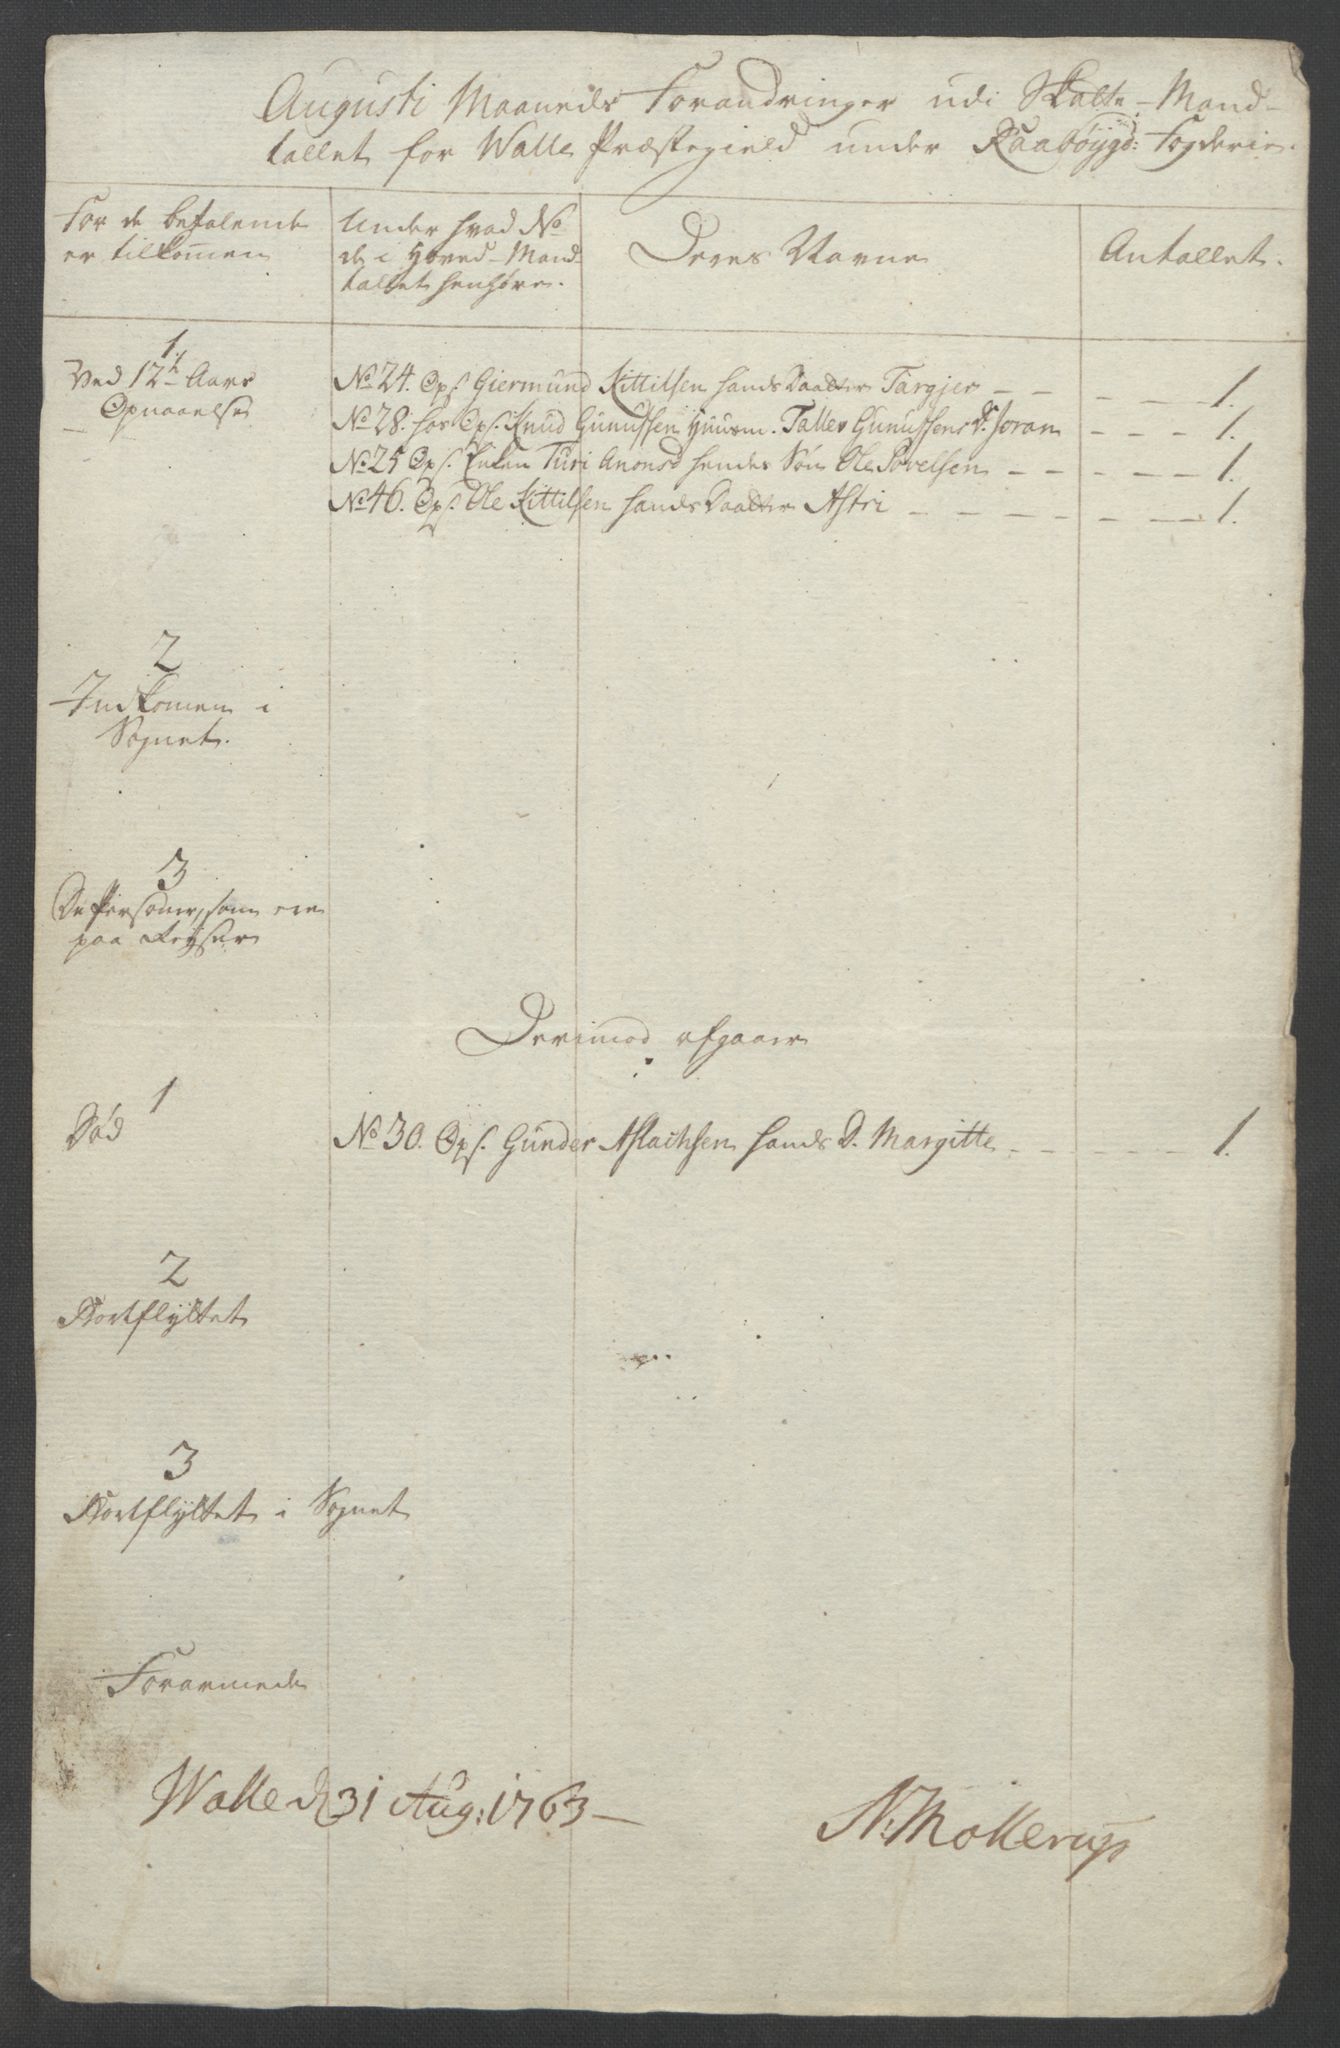 Augusti Maaneds Forandringer udi Skatte-Mand-
tallet for Walle Præstegield under Raabøygd: Fogderie.
For de betalende
er tilkomen
Under hvad No
de i Hoved-Mand-
tallet henhøre.
Deres Navne
Antallet.
1.
Ved 12te Aars
Opnaaelse
No 24. Ops. Giermund Kittilsen hands Daatter Targjer - - - - - 1.
No 28. hos Ops. Knud Gunufsen Huusm. Tallev Gunufsens Dr. Joran - - - 1.
No 25 Ops. Enken Turi Anonsd hendes Søn Ole Povelsen - - - - - 1.
No 46. Ops. Ole Kittilsen hands Daatter Astri - - - - - - - 1.
2
Indkomen i
Sognet.
3
De Personer, som ere
paa Reyser
Derimod afgaaer
1
Død
No 30. Ops. Gunder Aslachsen hands D. Margitte - - - - - - 1.
2
Bortflyttet
3
Bortflyttet i Sognet
Forarmede
Walle d 31 Aug: 1763 -
N: Mollerup